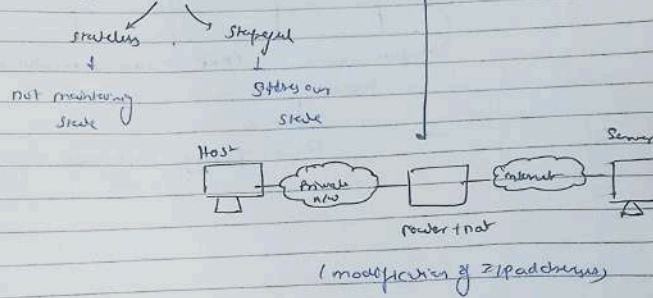 stateless stateful
not maintaining
state
stores our
state
Host
Private
n/w
Internet
Server
router + nat
(modification of IP addresses)